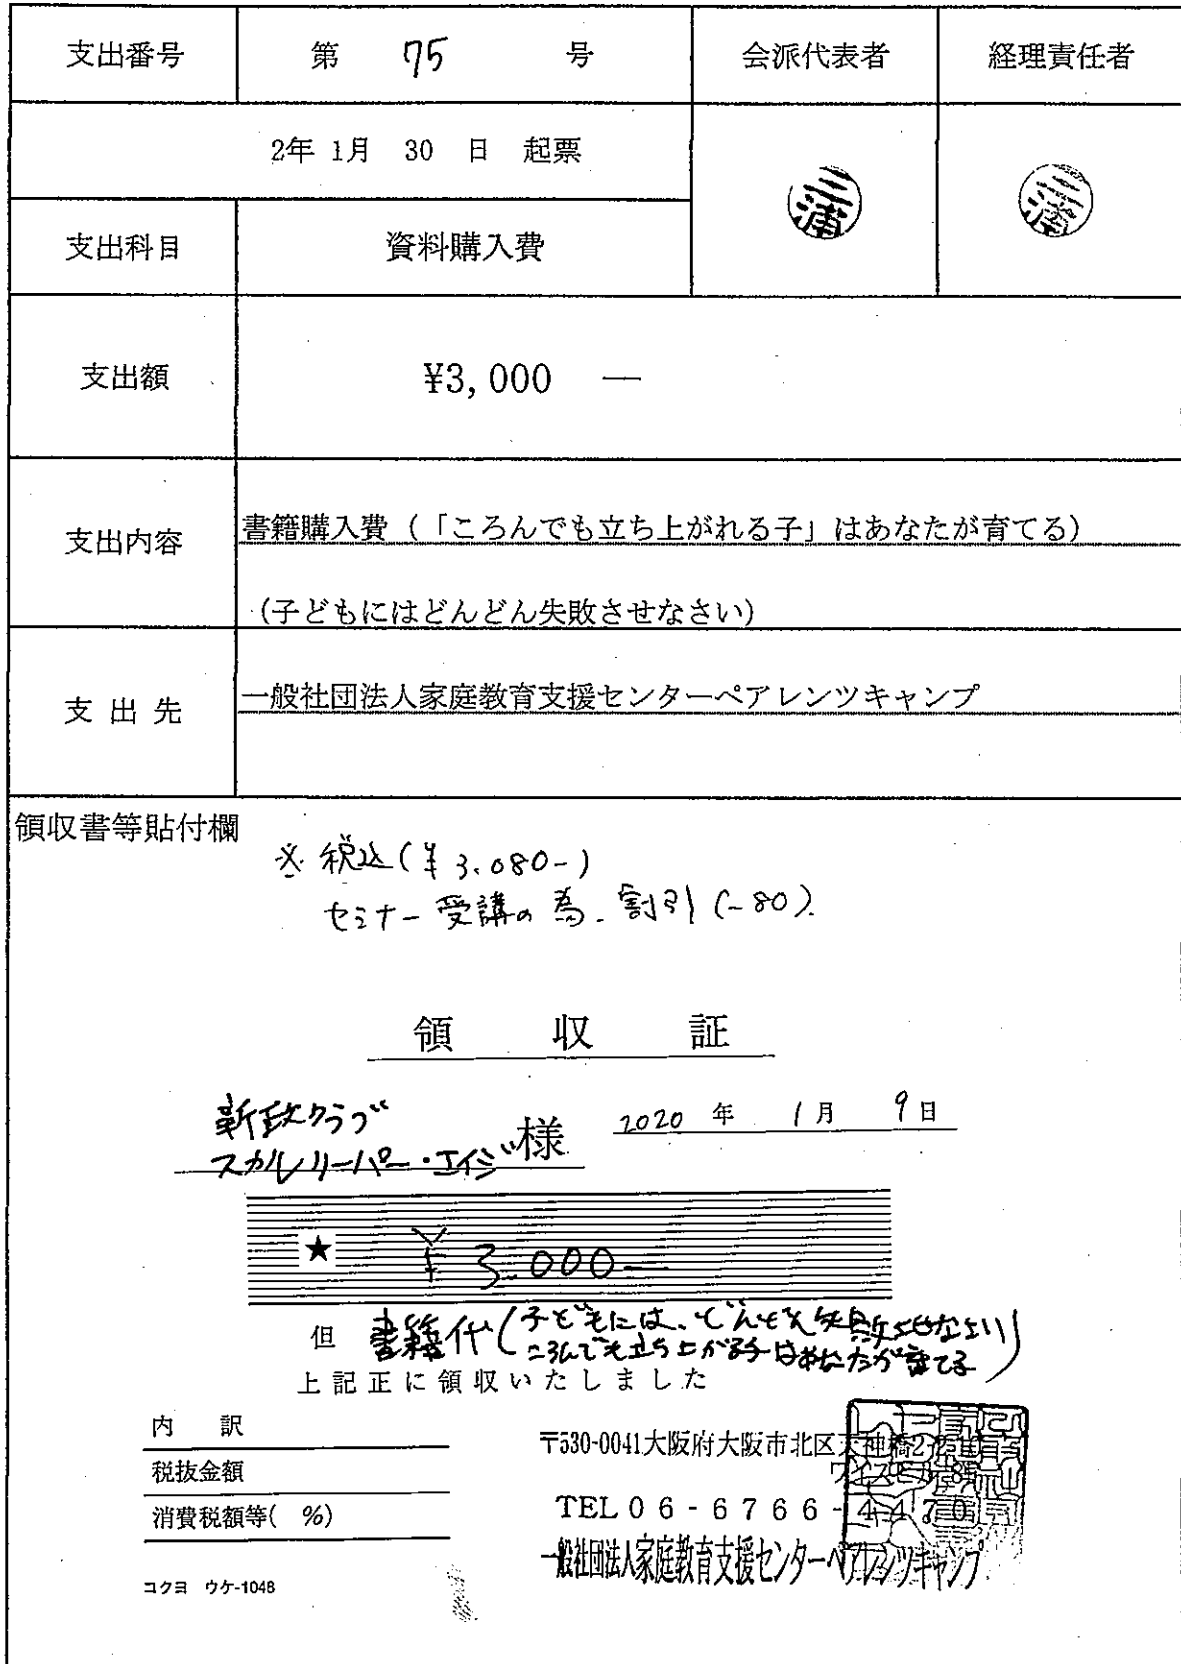 支出番号 第 75 号 会派代表者 経理責任者
2年 1月 30 日 起票
三浦 三浦
支出科目 資料購入費
支出額 ¥3,000 ―
支出内容 書籍購入費(「ころんでも立ち上がれる子」はあなたが育てる)
(子どもにはどんどん失敗させなさい)
支出先 一般社団法人家庭教育支援センターペアレンツキャンプ
領収書等貼付欄
※ 税込(¥3.080-)
セミナー受講の為、割引(-80)
領収証
新政クラブ
スカルリーパー・エイジ 様 2020 年 1月 9日
★ ¥3.000―
但 書籍代(子どもには、どんどん失敗させなさい
ころんでも立ち上がる子はあなたが育てる)
上記正に領収いたしました
内 訳
税抜金額
消費税額等( %)
コクヨ ウケ-1048
〒530-0041大阪府大阪市北区天神橋2
TEL 06-6766-4470
一般社団法人家庭教育支援センターペアレンツキャンプ